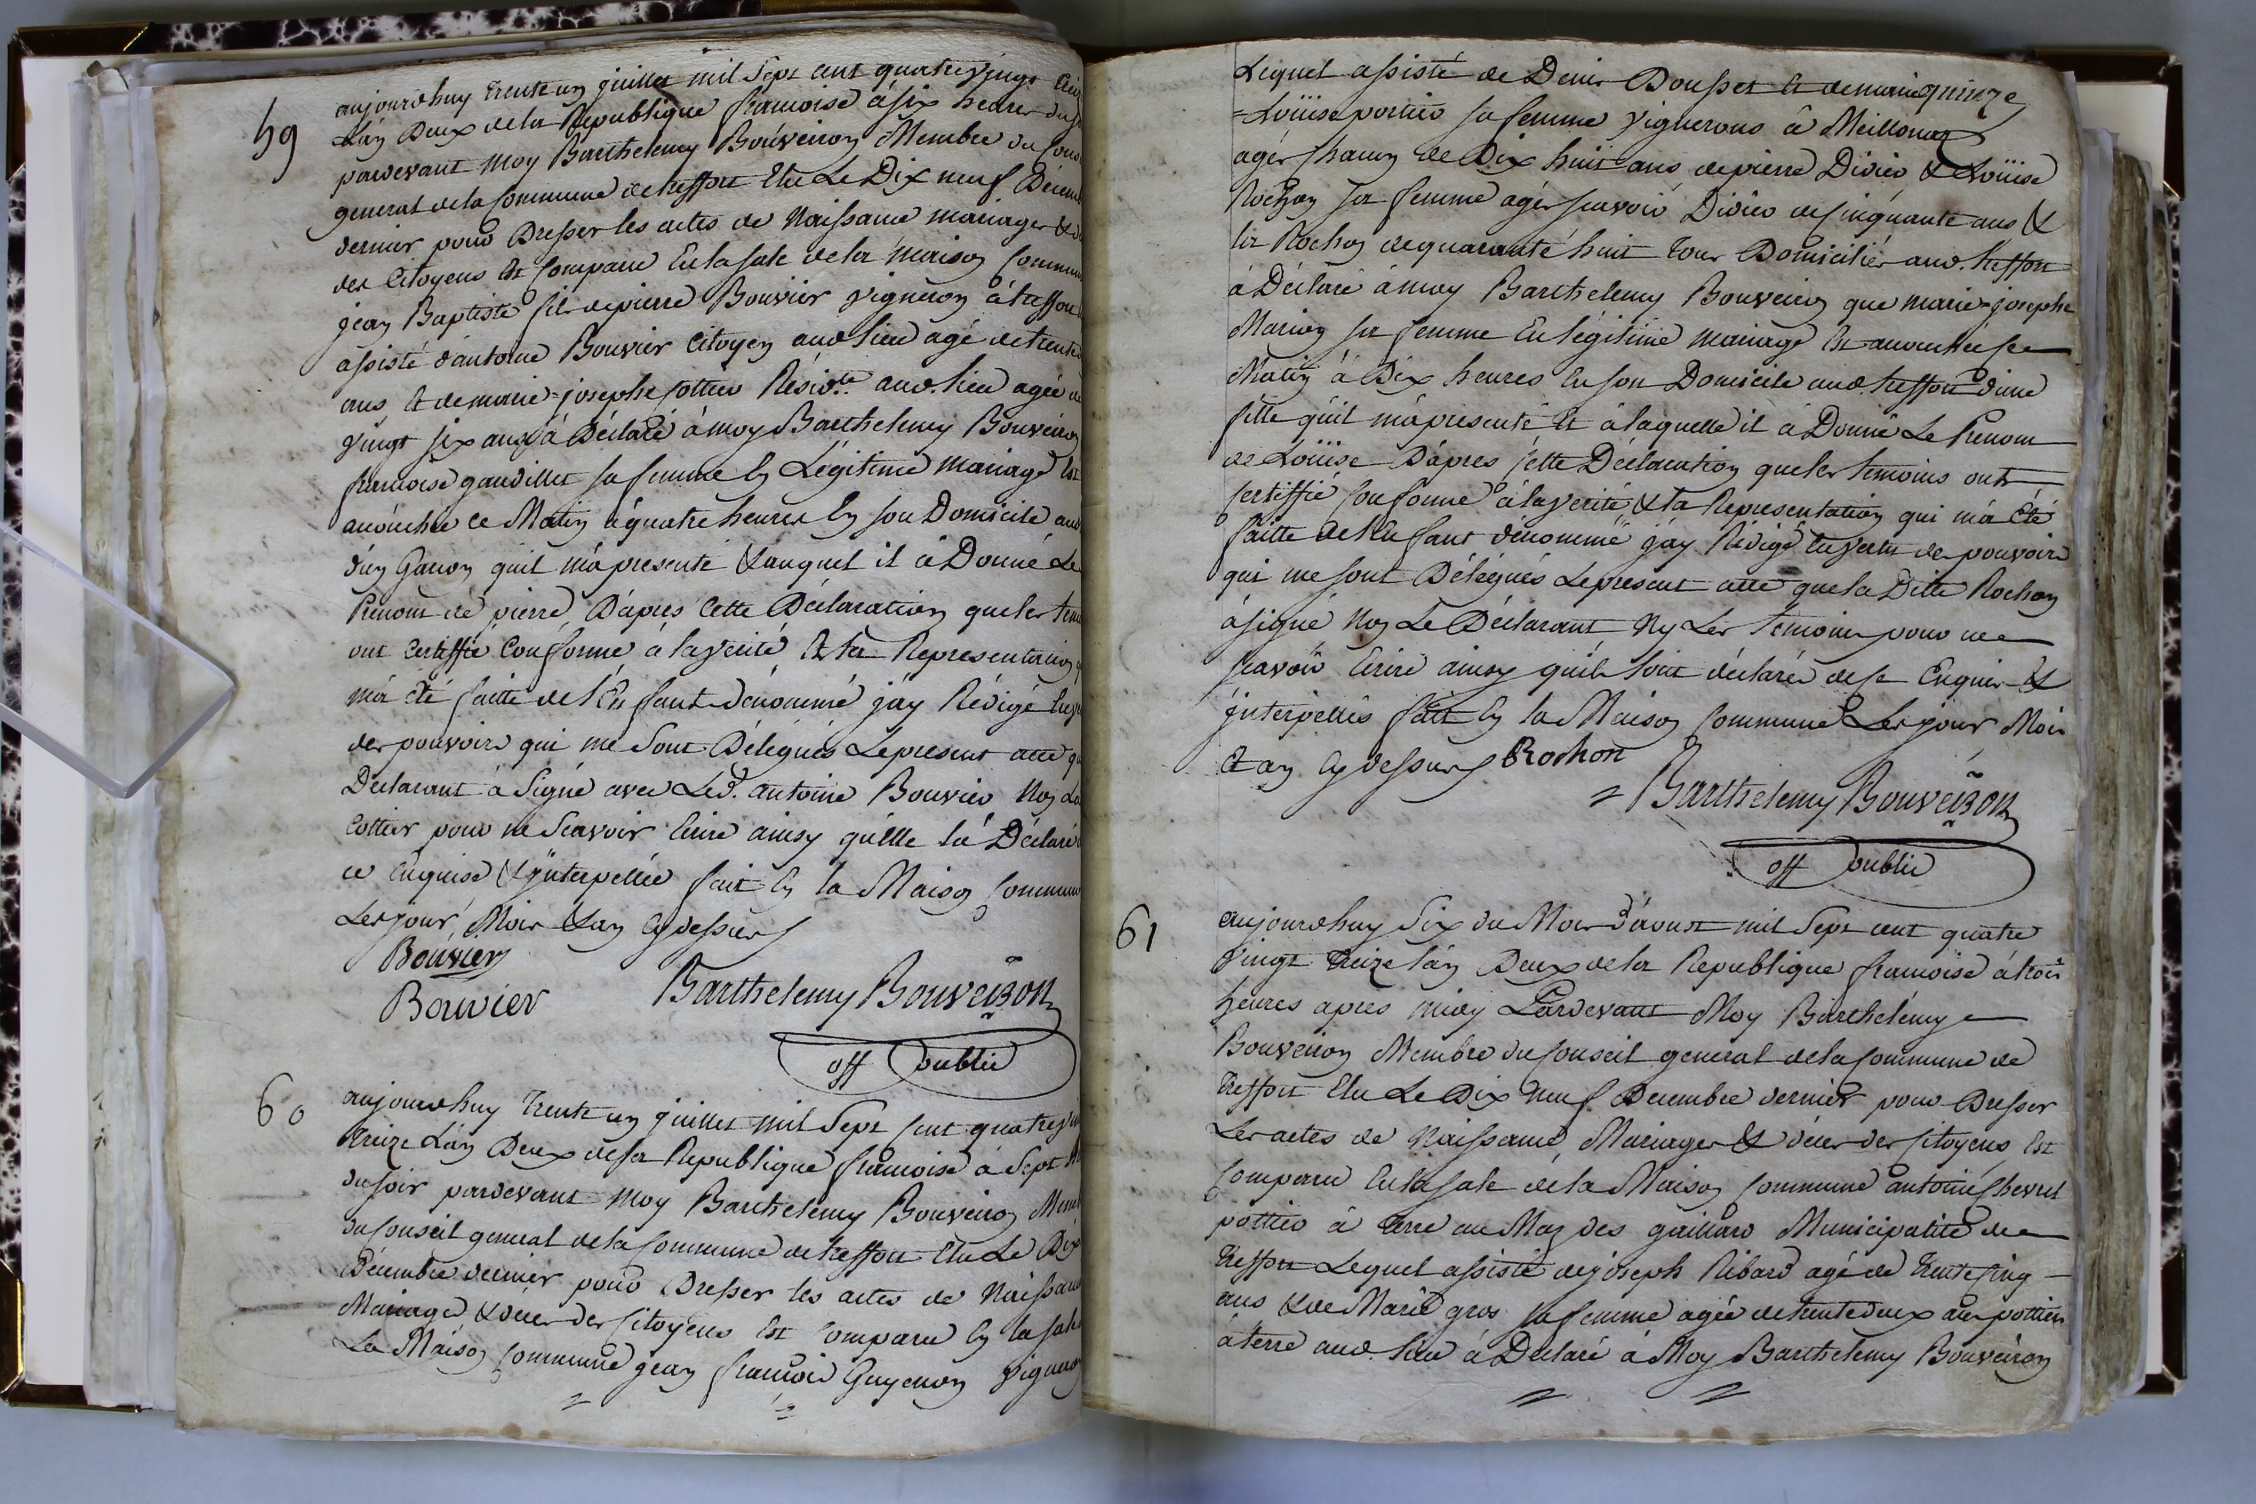 59
aujourdhuy trente un juillet mil sept cent quatrevingt
L'an Deux de la Republique francoise à six heures du
pardevant moy Barthelemy Bouveiron Membre du
general de la Commune de treffort Elu Le Dix neuf
dernier pour Dresser les actes de Naissance mariages &
des Citoyens Est Comparu En la sale de la maison
jean Baptiste fils de pierre Bouvier vigneron à treffort
assisté d'antoine Bouvier Citoyen aud. lieu agé de trente
ans Et de marie=josephe Cottier Résidte. aud. lieu agée
vingt six ans à Déclaré à moy Barthelemy Bouveiron
francoise gaudillet sa femme En Légitime mariage Est
acouchée ce Matin à quatre heures En son Domicile
d'un Garcon qu'il m'a presenté & auquel il à Donné Le
Prenom de pierre, D'apres Cette Déclaration que les
ont Certiffié Conforme à la verité Et la Representation
m'a été faitte de L'En fant dénommé j'ay Rédigé
des pouvoirs qui me sont Délégués Le present acte
Declarant à Signé avec Led. antoine Bouvier Non La
Cottier pour ne Scavoir Ecrire ainsy qu'Elle la Déclaré
ce Enquise & ÿnterpellée fait En la Maison Commune
Les jour, Mois & an Cy dessus
Bouvier
Bouvier
Barthelemy Bouveiron
off public
60
aujourdhuy trente un juillet mil Sept Cent
treize L'an Deux de la Republique francoise à Sept
du soir pardevant moy Barthelemy Bouveiron
du Conseil general de la Commune de treffort Elu Le Dix
Décembre dernier pour Dresser les actes de
Mariage, & décès des Citoyens Est Comparu En la
La Maison Commune jean francois Guyenon vigneron
Lequel assisté de Denis Dousset Et de marie
=Loüise portier sa femme vignerons à Meillonaz
agés Chacun de Dix huit ans de pierre Didier & Loüise
Rochon sa femme agés scavoir Didier de Cinquante ans &
la Rochon de quarante huit tous Domiciliés aud. treffort
à Déclaré à moy Barthelemy Bouveiron que marie=josephe
Marion sa femme En légitime mariage Est acouchée ce
Matin à Dix heures En son Domicile aud. treffort d'une
fille qu'il m'a presenté Et à laquelle il à Donné Le Prenom
de Loüise D'apres Cette Déclaration que les temoins ont
Certiffié Conforme à la verité & la Representation qui m'a Eté
faitte de L'En fant dénommé j'ay Rédigé En vertu de pouvoirs
qui me sont Délégués Le present acte que la Ditte Rochon
à signé Non Le Déclarant Ny Les temoins pour ne
scavoir Ecrire ainsy qu'ils l'ont déclarés de ce Enquis &
ÿnterpellés fait En la Maison Commune Les jour Mois
Et an Cy dessus Rochon
= Barthelemy Bouveiron
off public
61
aujourdhuy Six du Mois d'aoust mil Sept cent quatre
vingt treize l'an Deux de la Republique francoise à trois
heures apres midy Pardevant Moy Barthélemy
Bouveiron Membre du Conseil general de la Commune de
treffort Elu Le Dix Neuf Decembre dernier pour Dresser
Les actes de Naissance, Mariages & décès des Citoyens Est
Comparu En la sale de la Maison Commune antoine Chevrel
pottier à terre au Maz des gaillard Municipalité de
treffort Lequel assisté de joseph Ribard agé de trente Cinq
ans & de Marie gros sa femme agée de trente deux ans pottiers
à terre aud. lieu à Déclaré à Moy Barthelemy Bouveiron